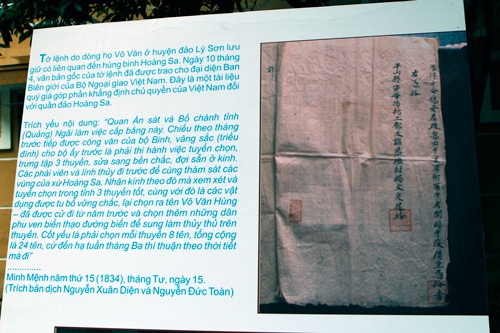 Tờ lệnh do dòng họ Võ Văn ở huyện đảo Lý Sơn lưu
giữ có liên quan đến hùng binh Hoàng Sa. Ngày 10 tháng
4, văn bản gốc của tờ lệnh đã được trao cho đại diện Ban
Biên giới của Bộ Ngoại giao Việt Nam. Đây là một tài liệu
quý giá góp phần khẳng định chủ quyền của Việt Nam đối
với quần đảo Hoàng Sa.
Trích yếu nội dung: "Quan Án sát và Bố chánh tỉnh
(Quảng) Ngãi làm việc cấp bằng này. Chiếu theo tháng
trước tiếp được công văn của bộ Binh, vâng sắc (triều
đình) cho bộ ấy trước là phải thi hành việc tuyển chọn,
trưng tập 3 thuyền, sửa sang bền chắc, đợi sẵn ở kinh.
Các phái viên và lính thủy đi trước để cùng thám sát các
vùng của xứ Hoàng Sa. Nhân kính theo đó mà xem xét và
tuyển chọn trong tỉnh 3 thuyền tốt, cùng với đó là các vật
dụng được tu bổ vững chắc, lại chọn ra tên Võ Văn Hùng
- đã được cử đi từ năm trước và chọn thêm những dân
phu ven biển thạo đường biển để sung làm thủy thủ trên
thuyền. Cốt yếu là phải chọn mỗi thuyền 8 tên, tổng cộng
là 24 tên, cứ đến hạ tuần tháng Ba thì thuận theo thời tiết
mà đi"
..............
Minh Mệnh năm thứ 15 (1834), tháng Tư, ngày 15.
(Trích bản dịch Nguyễn Xuân Diện và Nguyễn Đức Toàn)